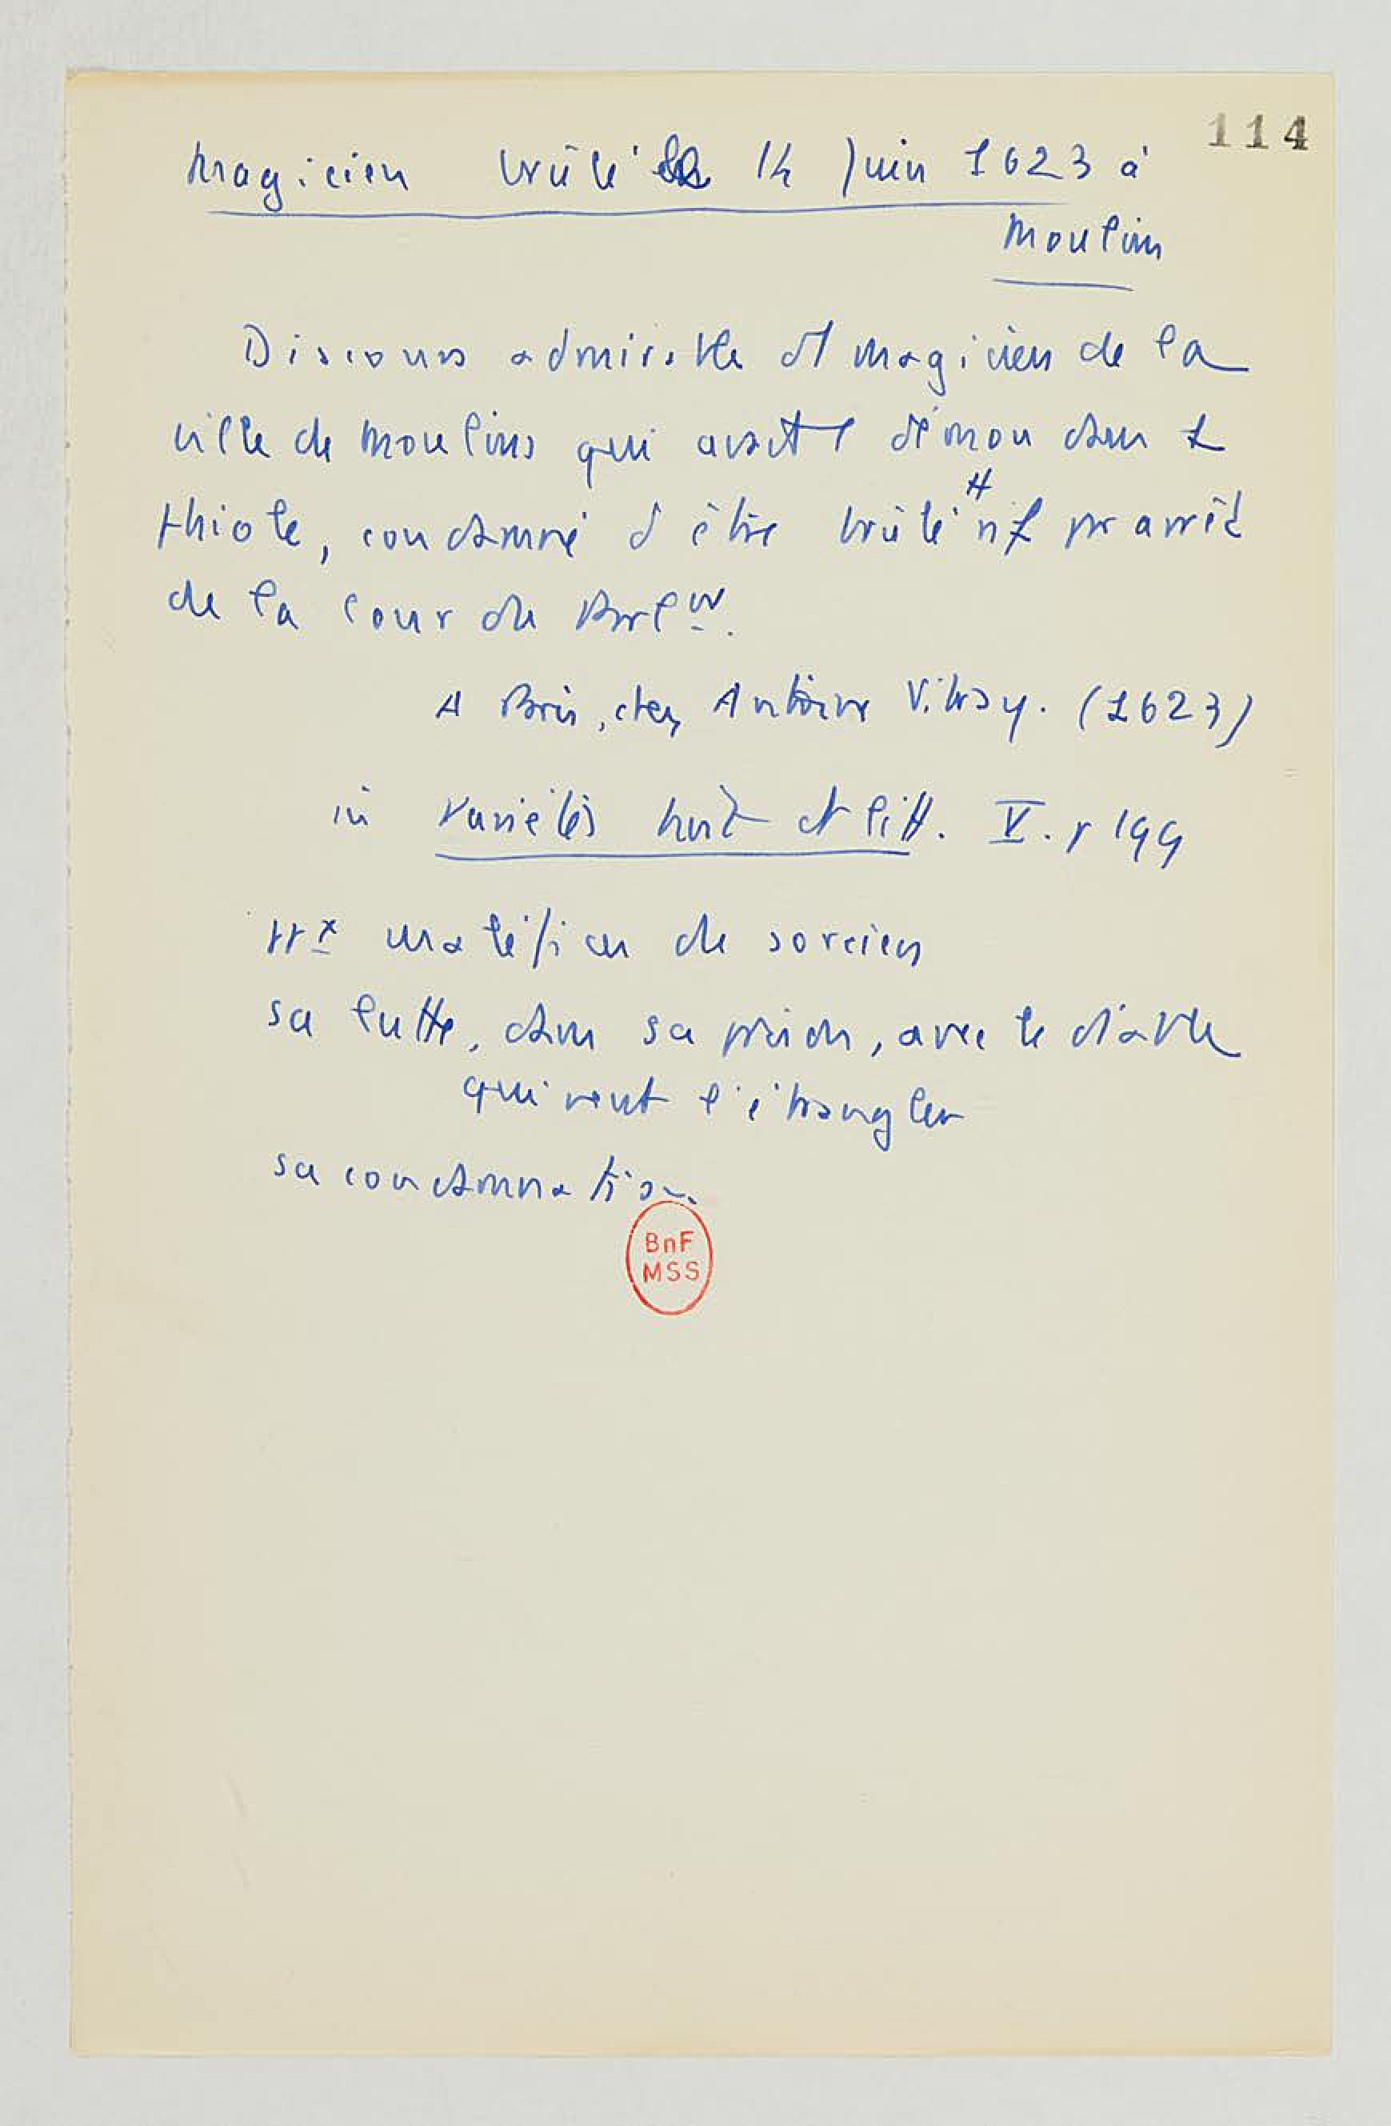 114
Magicien brûlé le 14 Juin 1623 à
Moulins
Discours admirable d'1 magicien de la
ville de Moulins qui avait 1 démon dans 1
phiole, condamné d'être brûlé vif par arrêt
de la Cour de Parlt.
A Paris, chez Antoine Vitray. (1623)
in Variétés hist et litt. V. p 199
maléfices de sorciers
sa lutte, dans sa prison, avec le diable
qui veut l'étrangler
sa condamnation.
BnF
MSS